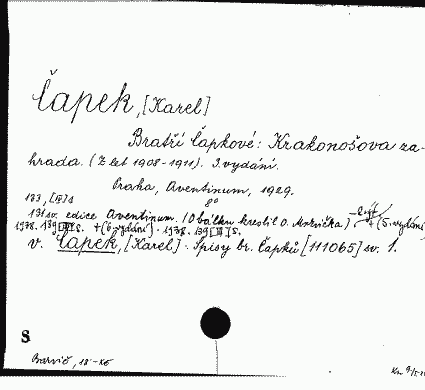 Čapek, [Karel]
Bratří Čapkové: Krakonošova za-
hrada. (Z let 1908-1911). 3. vydání.
Praha, Aventinum, 1929.
8°
183, [III] s
131 sv. edice Aventinum. (Obálku kreslil O. Mrkvička) + (5. vydání
1938. 139 [III] s. + (6. vydání). 1938. 139 [III] s.
v. Čapek, [Karel]. Spisy br. Čapků [111065] sv. 1.
S